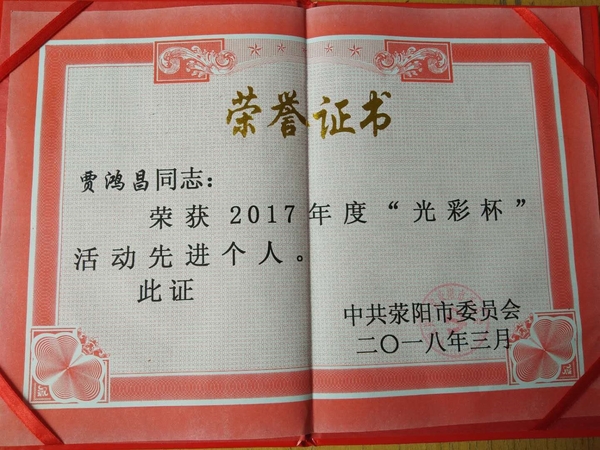 荣誉证书
贾鸿昌同志：
荣获2017年度“光彩杯”
活动先进个人。
此证
中共荥阳市委员会
二〇一八年三月